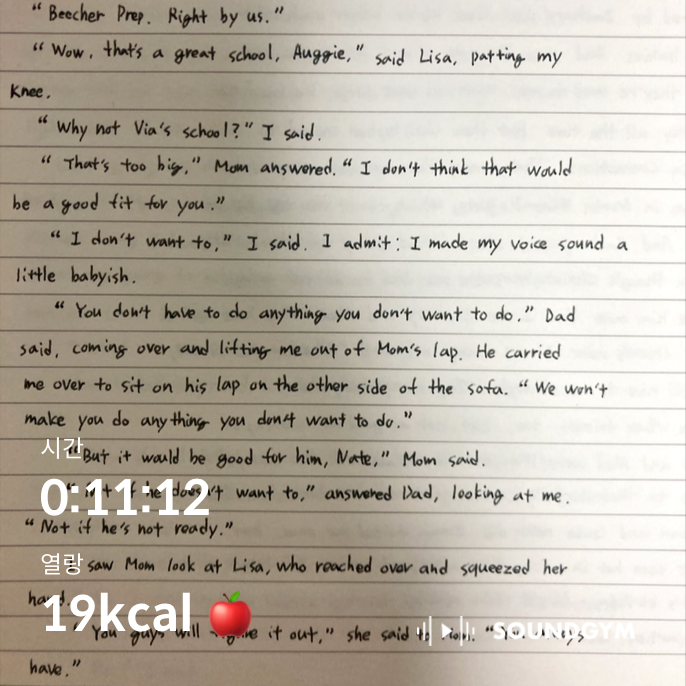 "Beecher Prep. Right by us."
"Wow, that's a great school, Auggie," said Lisa, patting my
Knee.
"Why not Via's school?" I said.
"That's too big," Mom answered. "I don't think that would
be a good fit for you."
"I don't want to," I said. I admit: I made my voice sound a
little babyish.
"You don't have to do anything you don't want to do." Dad
said, coming over and lifting me out of Mom's lap. He carried
me over to sit on his lap on the other side of the sofa. "We won't
make you do anything you don't want to do."
시간
"But it would be good for him, Nate," Mom said.
0:11:12
he doesn't want to," answered Dad, looking at me.
"Not if he's not ready."
열량
saw Mom look at Lisa, who reached over and squeezed her
hand.
19kcal
"You guys will it out," she said to Mom.
SOUNDGYM
have."